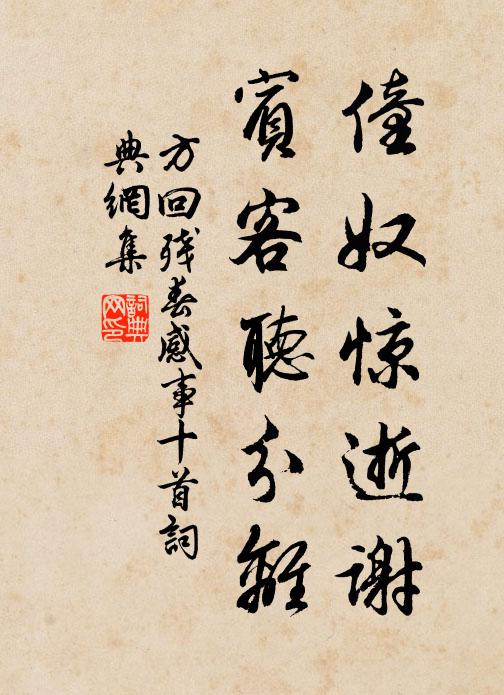 僮奴惊逝谢
賓客聽分離
方回殘春感事十首詞
典網集
詞典網印